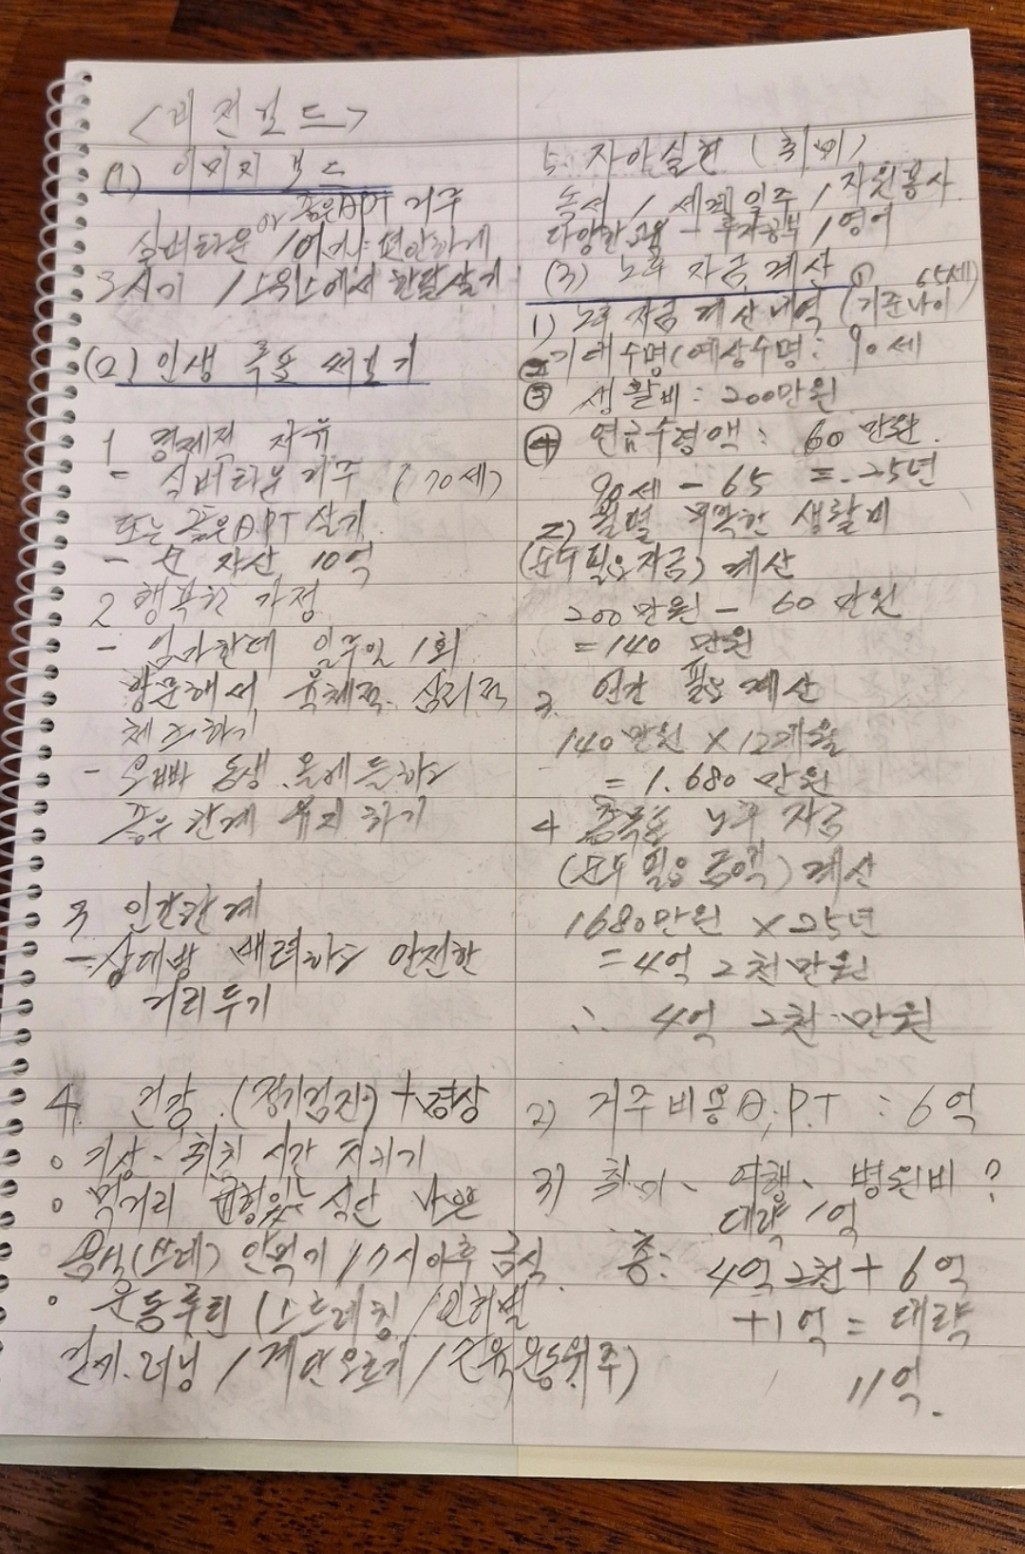 <비전보드>
(1) 이미지 보드
or 좋은APT 거주
실버타운 /여가: 편안하게
3시기 /스위스에서 한달살기
(2) 인생 목표 써보기
1 경제적 자유
- 실버타운 거주 (70세)
또는 좋은A.PT 살기
- 순 자산 10억
2 행복한 가정
- 엄마한테 일주일 1회
방문해서 육체적, 심리적
체크하기
- 오빠 동생 올케들하고
좋은 관계 유지하기
3. 인간관계
- 상대방 배려하고 안전한
거리두기
4. 건강 (정기검진) +
◦ 기상、취침 시간 지키기
◦ 먹거리 균형있는 식단 나쁜
음식(쓰레) 안먹기 /7시이후 금식
◦ 운동루틴 (스트레칭/
걷기.러닝 /계단오르기/근육운동위주)
5. 자아실현 (취미)
독서 / 세계일주 / 자원봉사
다양한교육 - 투자공부 / 영어
(3) 노후 자금 계산
1) 노후 자금 계산 내역 (① 기준나이 65세)
② 기대수명(예상수명: 90세
③ 생활비: 200만원
④ 연금수령액: 60만원.
90세 - 65 = 25년
2) 월별 부족한 생활비
(순수필요자금) 계산
200만원 - 60만원
= 140 만원
3. 연간 필요 계산
140만원 × 12개월
= 1.680 만원
4 총 노후 자금
(순수 필요 금액) 계산
1680만원 × 25년
= 4억 2천만원
∴ 4억 2천만원
2) 거주비용 A.P.T : 6억
3) 취미、여행、병원비 ?
대략 1억
총: 4억2천 + 6억
+1억 = 대략
11억.